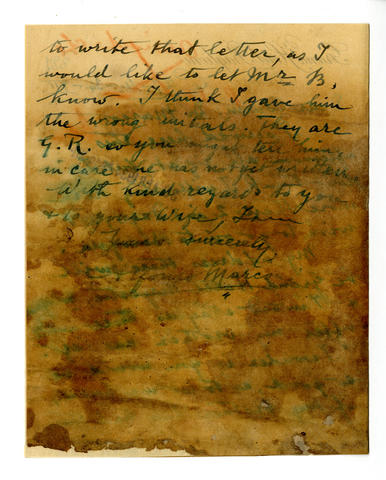 to write that letter, as I
would like to let Mr B,
know. I think I gave him
the wrong initals. They are
G. R. so you might tell him,
in case he has not yet written.
With kind regards to you
& to your Wife, I am
Yours sincerely,
Marcs